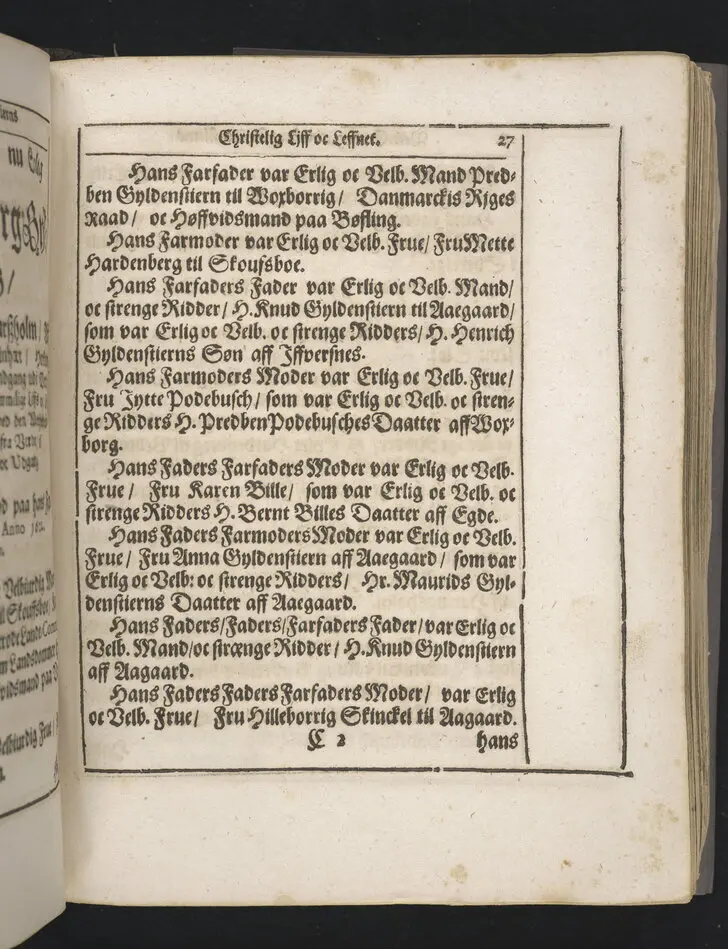 Christelig Liff oc Leffnet. 27
Hans Farfader var Erlig oc Velb. Mand Pred-
ben Gyldenstiern til Woxborrig / Danmarckis Rjges
Raad / oc Høffvidsmand paa Bøfling.
Hans Farmoder var Erlig oc Velb. Frue / Fru Mette
Hardenberg til Skoufsboe.
Hans Farfaders Fader var Erlig oc Velb. Mand /
oc strenge Ridder / H. Knud Gyldenstiern til Aaegaard /
som var Erlig oc Velb. oc strenge Ridders / H. Henrich
Gyldenstierns Søn aff Iffversnes.
Hans Farmoders Moder var Erlig oc Velb. Frue /
Fru Jytte Podebusch / som var Erlig oc Velb. oc stren-
ge Ridders H. Predben Podebusches Daatter aff Wox-
borg.
Hans Faders Farfaders Moder var Erlig oc Velb.
Frue / Fru Karen Bille / som var Erlig oc Velb. oc
strenge Ridders H. Bernt Billes Daatter aff Egde.
Hans Faders Farmoders Moder var Erlig oc Velb.
Frue / Fru Anna Gyldenstiern aff Aaegaard / som var
Erlig oc Velb: oc strenge Ridders / Hr. Maurids Gyl-
denstierns Daatter aff Aaegaard.
Hans Faders / Faders / Farfaders Fader / var Erlig oc
Velb. Mand / oc strænge Ridder / H. Knud Gyldenstiern
aff Aagaard.
Hans Faders Faders Farfaders Moder / var Erlig
oc Velb. Frue / Fru Hilleborrig Skinckel til Aagaard.
C 2 Hans